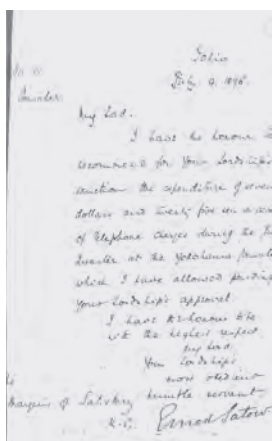 Tokio
July 9. 1896.
My Lord,
I have the honour to
recommend for Your Lordship's
sanction the expenditure of seven
dollars and twenty five sen
of telephone charges during the
Quarter at the Yokohama
which I have allowed pending
Your Lordship's approval.
I have the honour to be
with the highest respect,
My Lord,
Your Lordship's
most obedient
humble servant
Marquess of Salisbury
K.G.
Ernest Satow